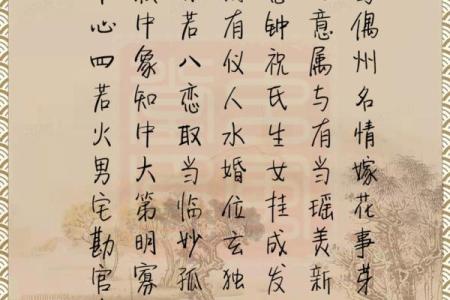 偶州名情嫁花事芽
意属与有当瑶美新
钟祝氏生女挂成发
有仪人水婚位玄独
若八恋取当临妙孤
中象知中大第明寡
心四若火男宅勘官